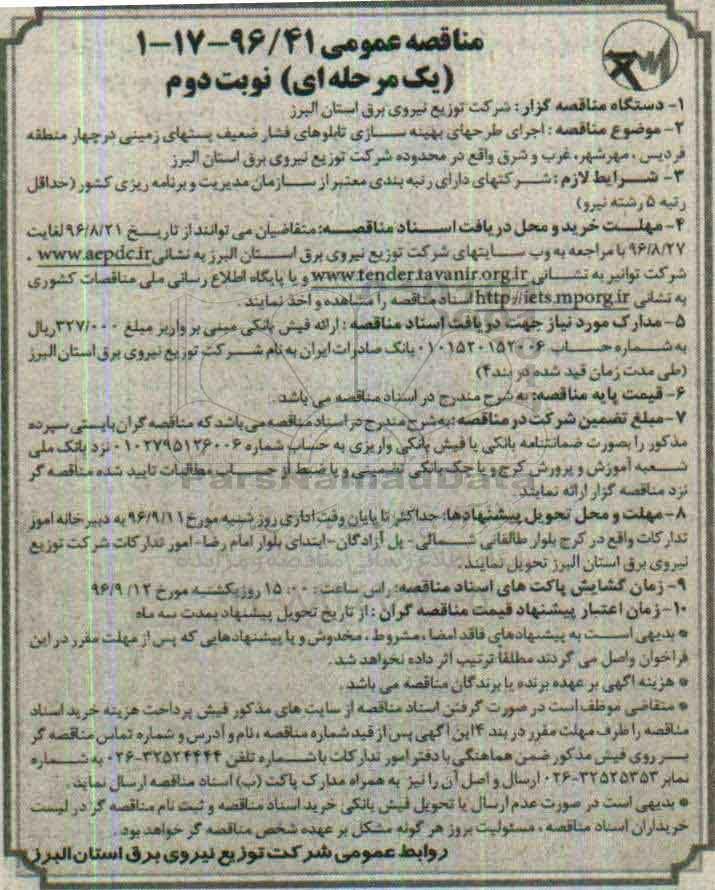 مناقصه عمومی ۹۶/۴۱-۱۷-۱
(یک مرحله ای) نوبت دوم
۱- دستگاه مناقصه گزار: شرکت توزیع نیروی برق استان البرز
۲- موضوع مناقصه: اجرای طرحهای بهینه سازی تابلوهای فشار ضعیف پستهای زمینی در چهار منطقه
فردیس، مهرشهر، غرب و شرق واقع در محدوده شرکت توزیع نیروی برق استان البرز
۳- شرایط لازم: شرکتهای دارای رتبه بندی معتبر از سازمان مدیریت و برنامه ریزی کشور (حداقل
رتبه ۵ رشته نیرو)
۴- مهلت خرید و محل دریافت اسناد مناقصه: متقاضیان می توانند از تاریخ ۹۶/۸/۲۱ لغایت
۹۶/۸/۲۷ با مراجعه به وب سایتهای شرکت توزیع نیروی برق استان البرز به نشانی www.aepdc.ir،
شرکت توانیر به نشانی www.tender.tavanir.org.ir و یا پایگاه اطلاع رسانی ملی مناقصات کشوری
به نشانی http://iets.mporg.ir اسناد مناقصه را مشاهده و اخذ نمایند.
۵- مدارک مورد نیاز جهت دریافت اسناد مناقصه: ارائه فیش بانکی مبنی بر واریز مبلغ ۳۲۷/۰۰۰ ریال
به شماره حساب ۰۱۰۱۵۲۰۱۵۲۰۰۶ بانک صادرات ایران به نام شرکت توزیع نیروی برق استان البرز
(طی مدت زمان قید شده در بند ۴)
۶- قیمت پایه مناقصه: به شرح مندرج در اسناد مناقصه می باشد.
۷- مبلغ تضمین شرکت در مناقصه: به شرح مندرج در اسناد مناقصه می باشد که مناقصه گران بایستی سپرده
مذکور را بصورت ضمانتنامه بانکی یا فیش بانکی واریزی به حساب شماره ۰۱۰۲۷۹۵۱۳۶۰۰۶ نزد بانک ملی
شعبه آموزش و پرورش کرج و یا چک بانکی تضمینی و یا ضبط از حساب مطالبات تایید شده مناقصه گر
نزد مناقصه گزار ارائه نمایند.
۸- مهلت و محل تحویل پیشنهادها: حداکثر تا پایان وقت اداری روز شنبه مورخ ۹۶/۹/۱۱ به دبیرخانه امور
تدارکات واقع در کرج بلوار طالقانی شمالی- پل آزادگان- ابتدای بلوار امام رضا- امور تدارکات شرکت توزیع
نیروی برق استان البرز تحویل نمایند.
۹- زمان گشایش پاکت های اسناد مناقصه: راس ساعت: ۱۵:۰۰ روز یکشنبه مورخ ۹۶/۹/۱۲
۱۰- زمان اعتبار پیشنهاد قیمت مناقصه گران: از تاریخ تحویل پیشنهاد بمدت سه ماه
* بدیهی است به پیشنهادهای فاقد امضا، مشروط، مخدوش و یا پیشنهادهایی که پس از مهلت مقرر در این
فراخوان واصل می گردند مطلقاً ترتیب اثر داده نخواهد شد.
* هزینه آگهی بر عهده برنده یا برندگان مناقصه می باشد.
* متقاضی موظف است در صورت گرفتن اسناد مناقصه از سایت های مذکور فیش پرداخت هزینه خرید اسناد
مناقصه را ظرف مهلت مقرر در بند ۴ این آگهی پس از قید شماره مناقصه، نام و آدرس و شماره تماس مناقصه گر
بر روی فیش مذکور ضمن هماهنگی با دفتر امور تدارکات با شماره تلفن ۳۲۵۲۴۴۴۴-۰۲۶ به شماره
نمابر ۳۲۵۲۵۳۵۳-۰۲۶ ارسال و اصل آن را نیز به همراه مدارک پاکت (ب) اسناد مناقصه ارسال نماید.
* بدیهی است در صورت عدم ارسال یا تحویل فیش بانکی خرید اسناد مناقصه و ثبت نام مناقصه گر در لیست
خریداران اسناد مناقصه، مسئولیت بروز هر گونه مشکل بر عهده شخص مناقصه گر خواهد بود.
روابط عمومی شرکت توزیع نیروی برق استان البرز
ParsNamadData